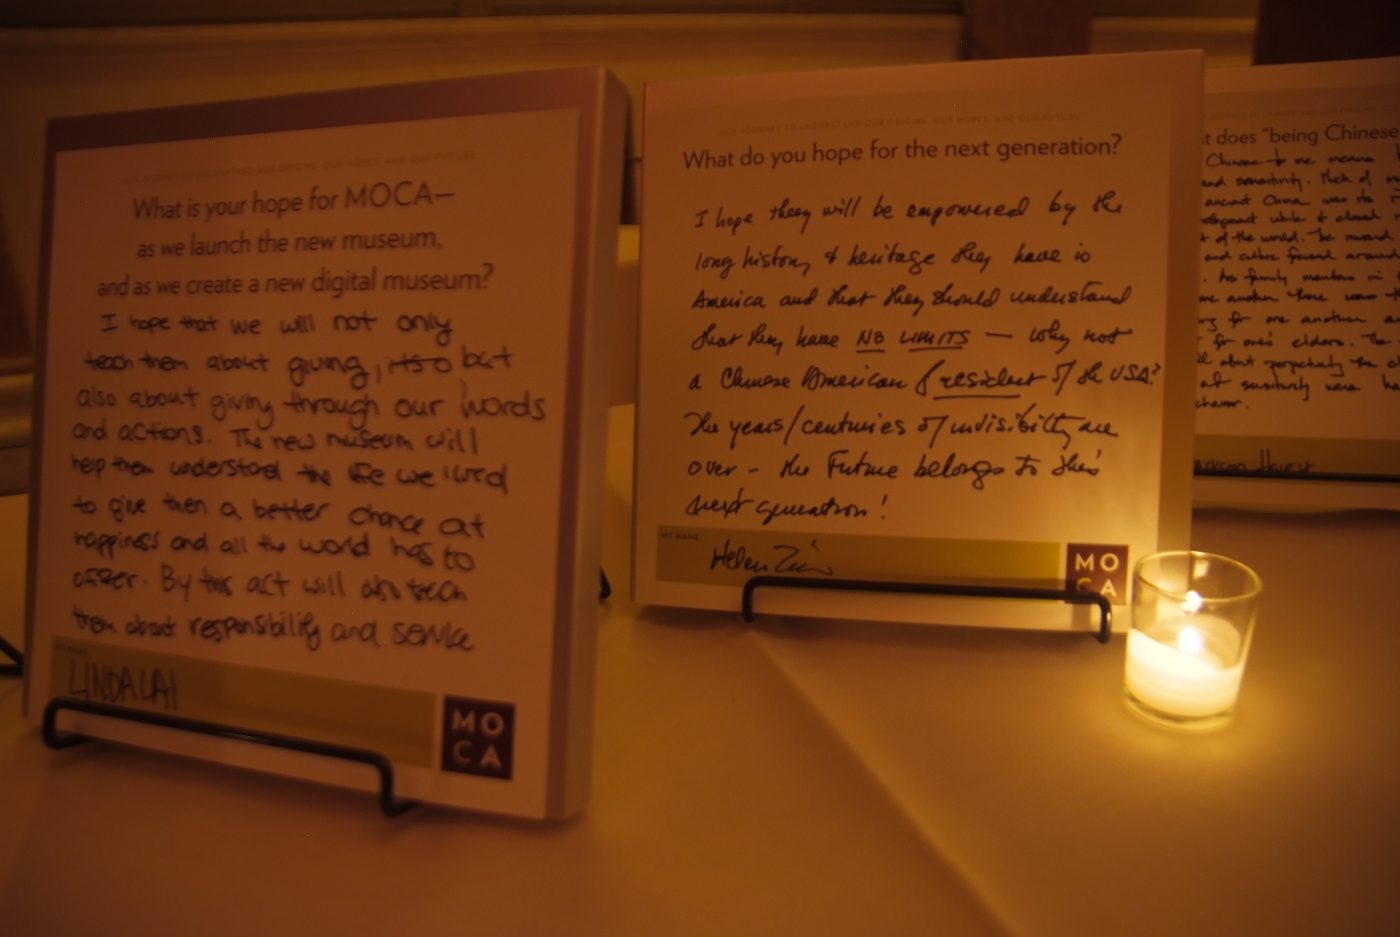 OUR JOURNEY TO UNDERSTAND OUR ORIGINS, OUR HOPES, AND OUR FUTURE
What is your hope for MOCA—
as we launch the new museum,
and as we create a new digital museum?
I hope that we will not only
teach them about giving, but
also about giving through our words
and actions. The new museum will
help them understand the life we lived
to give them a better chance at
happiness and all the world has to
offer. By this act will also teach
them about responsibility and service
MY NAME
LINDA LAI
MO
CA
OUR JOURNEY TO UNDERSTAND OUR ORIGINS, OUR HOPES, AND OUR FUTURE
What do you hope for the next generation?
I hope they will be empowered by the
long history & heritage they have in
America and that they should understand
that they have NO LIMITS — why not
a Chinese American President of the USA?
The years/centuries of invisibility are
over - the Future belongs to this
next generation!
MY NAME
Helen
MO
CA
does "being Chinese
Chinese to me means
and sensitivity. Much of
ancient China was its
while it closed
of the world. The
and culture focused around
As family members in
one another there was
for one another
for one's elders. The
about perpetuating the
sensitivity were